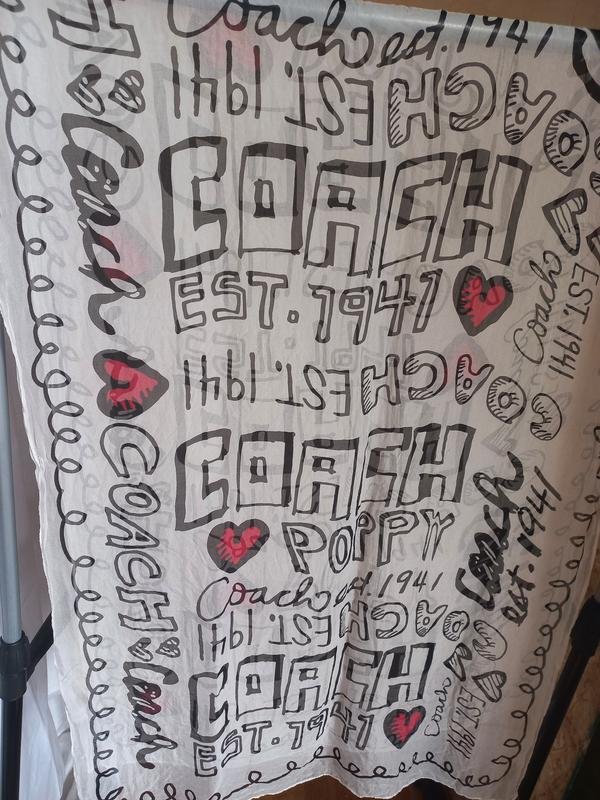 Coach est. 1941
COACH EST. 1941
COACH
EST. 1941
COACH EST. 1941
COACH
POPPY
Coach est. 1941
COACH EST. 1941
COACH
EST. 1941
H
Coach
COACH
Coach
Coach
EST. 1941
Coach
est. 1941
Coach
EST. 1941